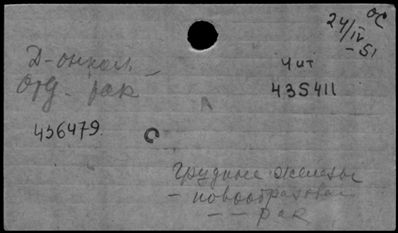 ОС
24/IV-51
Д-онкол.
Отд. рак
Чит
435411
436479.
С
грудные железы
- новообразован
- - рак